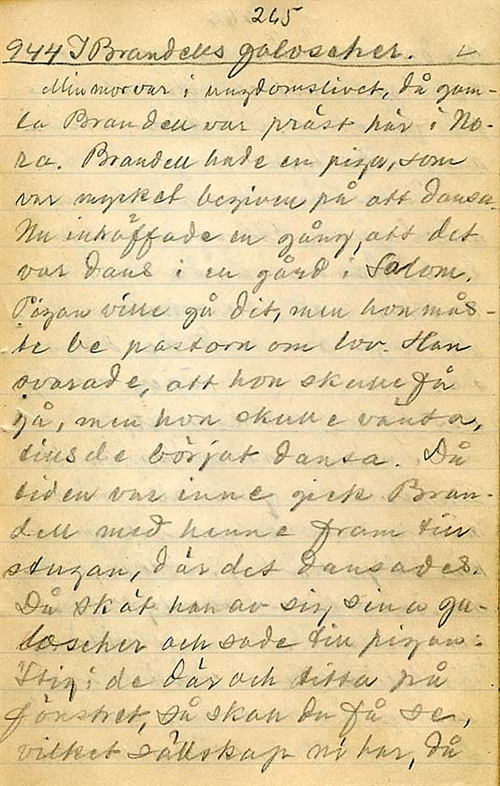 265
944 I Brandells galoscher.
Min mor var i ungdomslivet, då gam-
la Brandell var präst här i No-
ra. Brandell hade en piga, som
var mycket begiven på att dansa.
Nu inträffade en gång, att det
var dans i en gård i Salom.
Pigan ville gå dit, men hon mås-
te be pastorn om lov. Han
svarade, att hon skulle få
gå, men hon skulle vänta,
tills de börjat dansa. Då
tiden var inne gick Bran-
dell med henne fram till
stugan, där det dansades.
Då sköt han av sig sina ga-
loscher och sade till pigan:
"Stig i de där och titta på
fönstret, så skall du få se,
vilket sällskap ni har, då